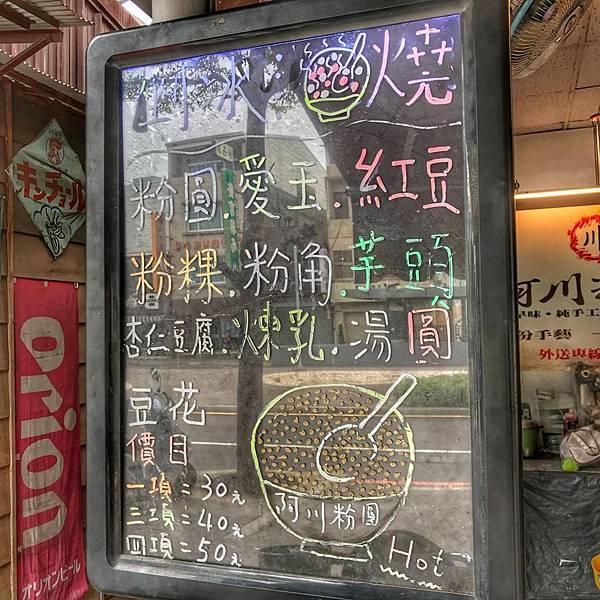 剉冰 燒
粉圓.愛玉.紅豆
粉粿.粉角.芋頭
杏仁豆腐.煉乳.湯圓
豆花
價目
一項=30元
三項=40元
四項=50元
阿川粉圓
Hot
キンチョール
orion
オリオンビール
川
阿川
味·純手工
粉手藝
外送專線